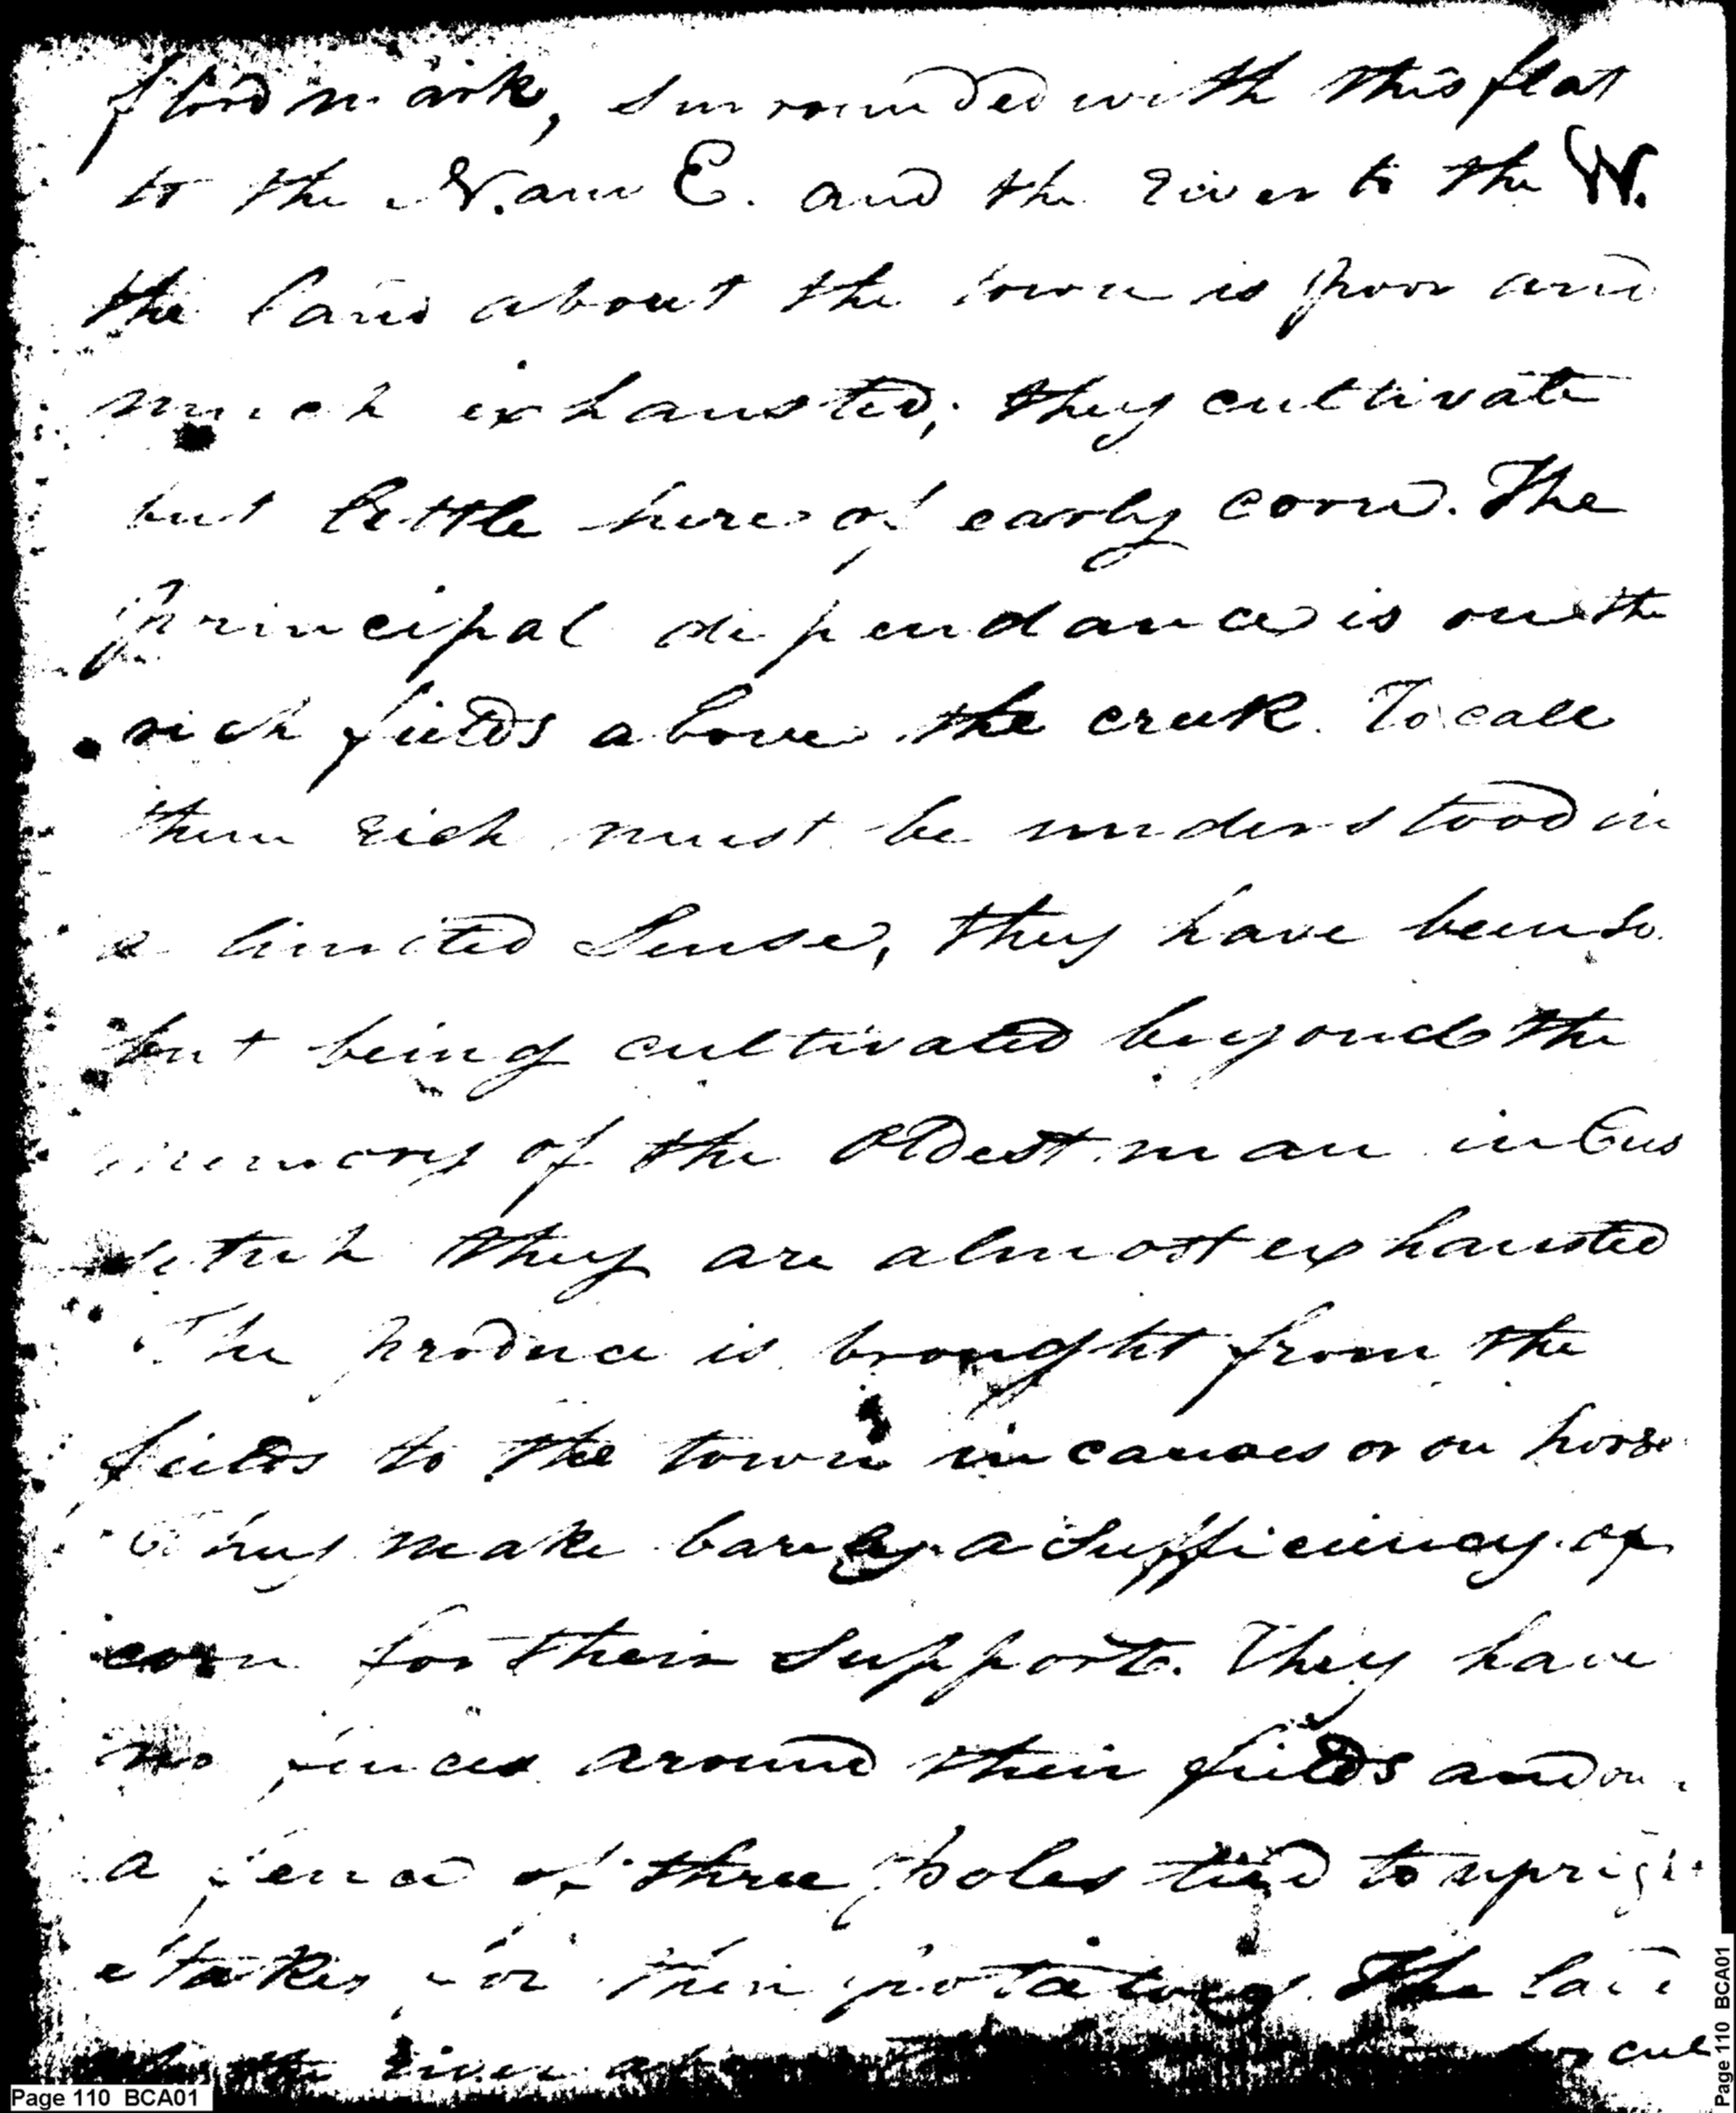 flood mark, surrounded with this flat
to the N. and E. and the river to the W.
the land about the town is poor and
much exhausted; they cultivate
but little here of early corn. The
principal dependance is on the
rich fields above the creek. To call
them rich must be understood in
a limited Sense, they have been so
but being cultivated beyond the
memory of the oldest man in Cus
setuh they are almost exhausted
The produce is brought from the
fields to the town in canoes or on horse
They make barely a sufficiency of
corn for their support. They have
no fences around their fields and on
a fence of three poles tied to upright
stakes for their potatoes. The land
the river cul
Page 110 BCA01
Page 110 BCA01